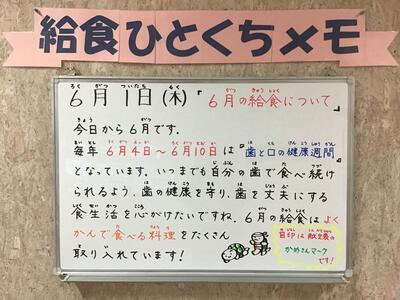 給食ひとくちメモ
6月1日(木)「6月の給食について」
今日から6月です。
毎年 6月4日～6月10日は「歯と口の健康週間」
となっています。いつまでも自分の歯で食べ続け
られるよう、歯の健康を守り、歯を丈夫にする
食生活を心がけたいですね。6月の給食はよく
かんで食べる料理をたくさん
取り入れています!
目印は献立表の
かめさんマーク
です!